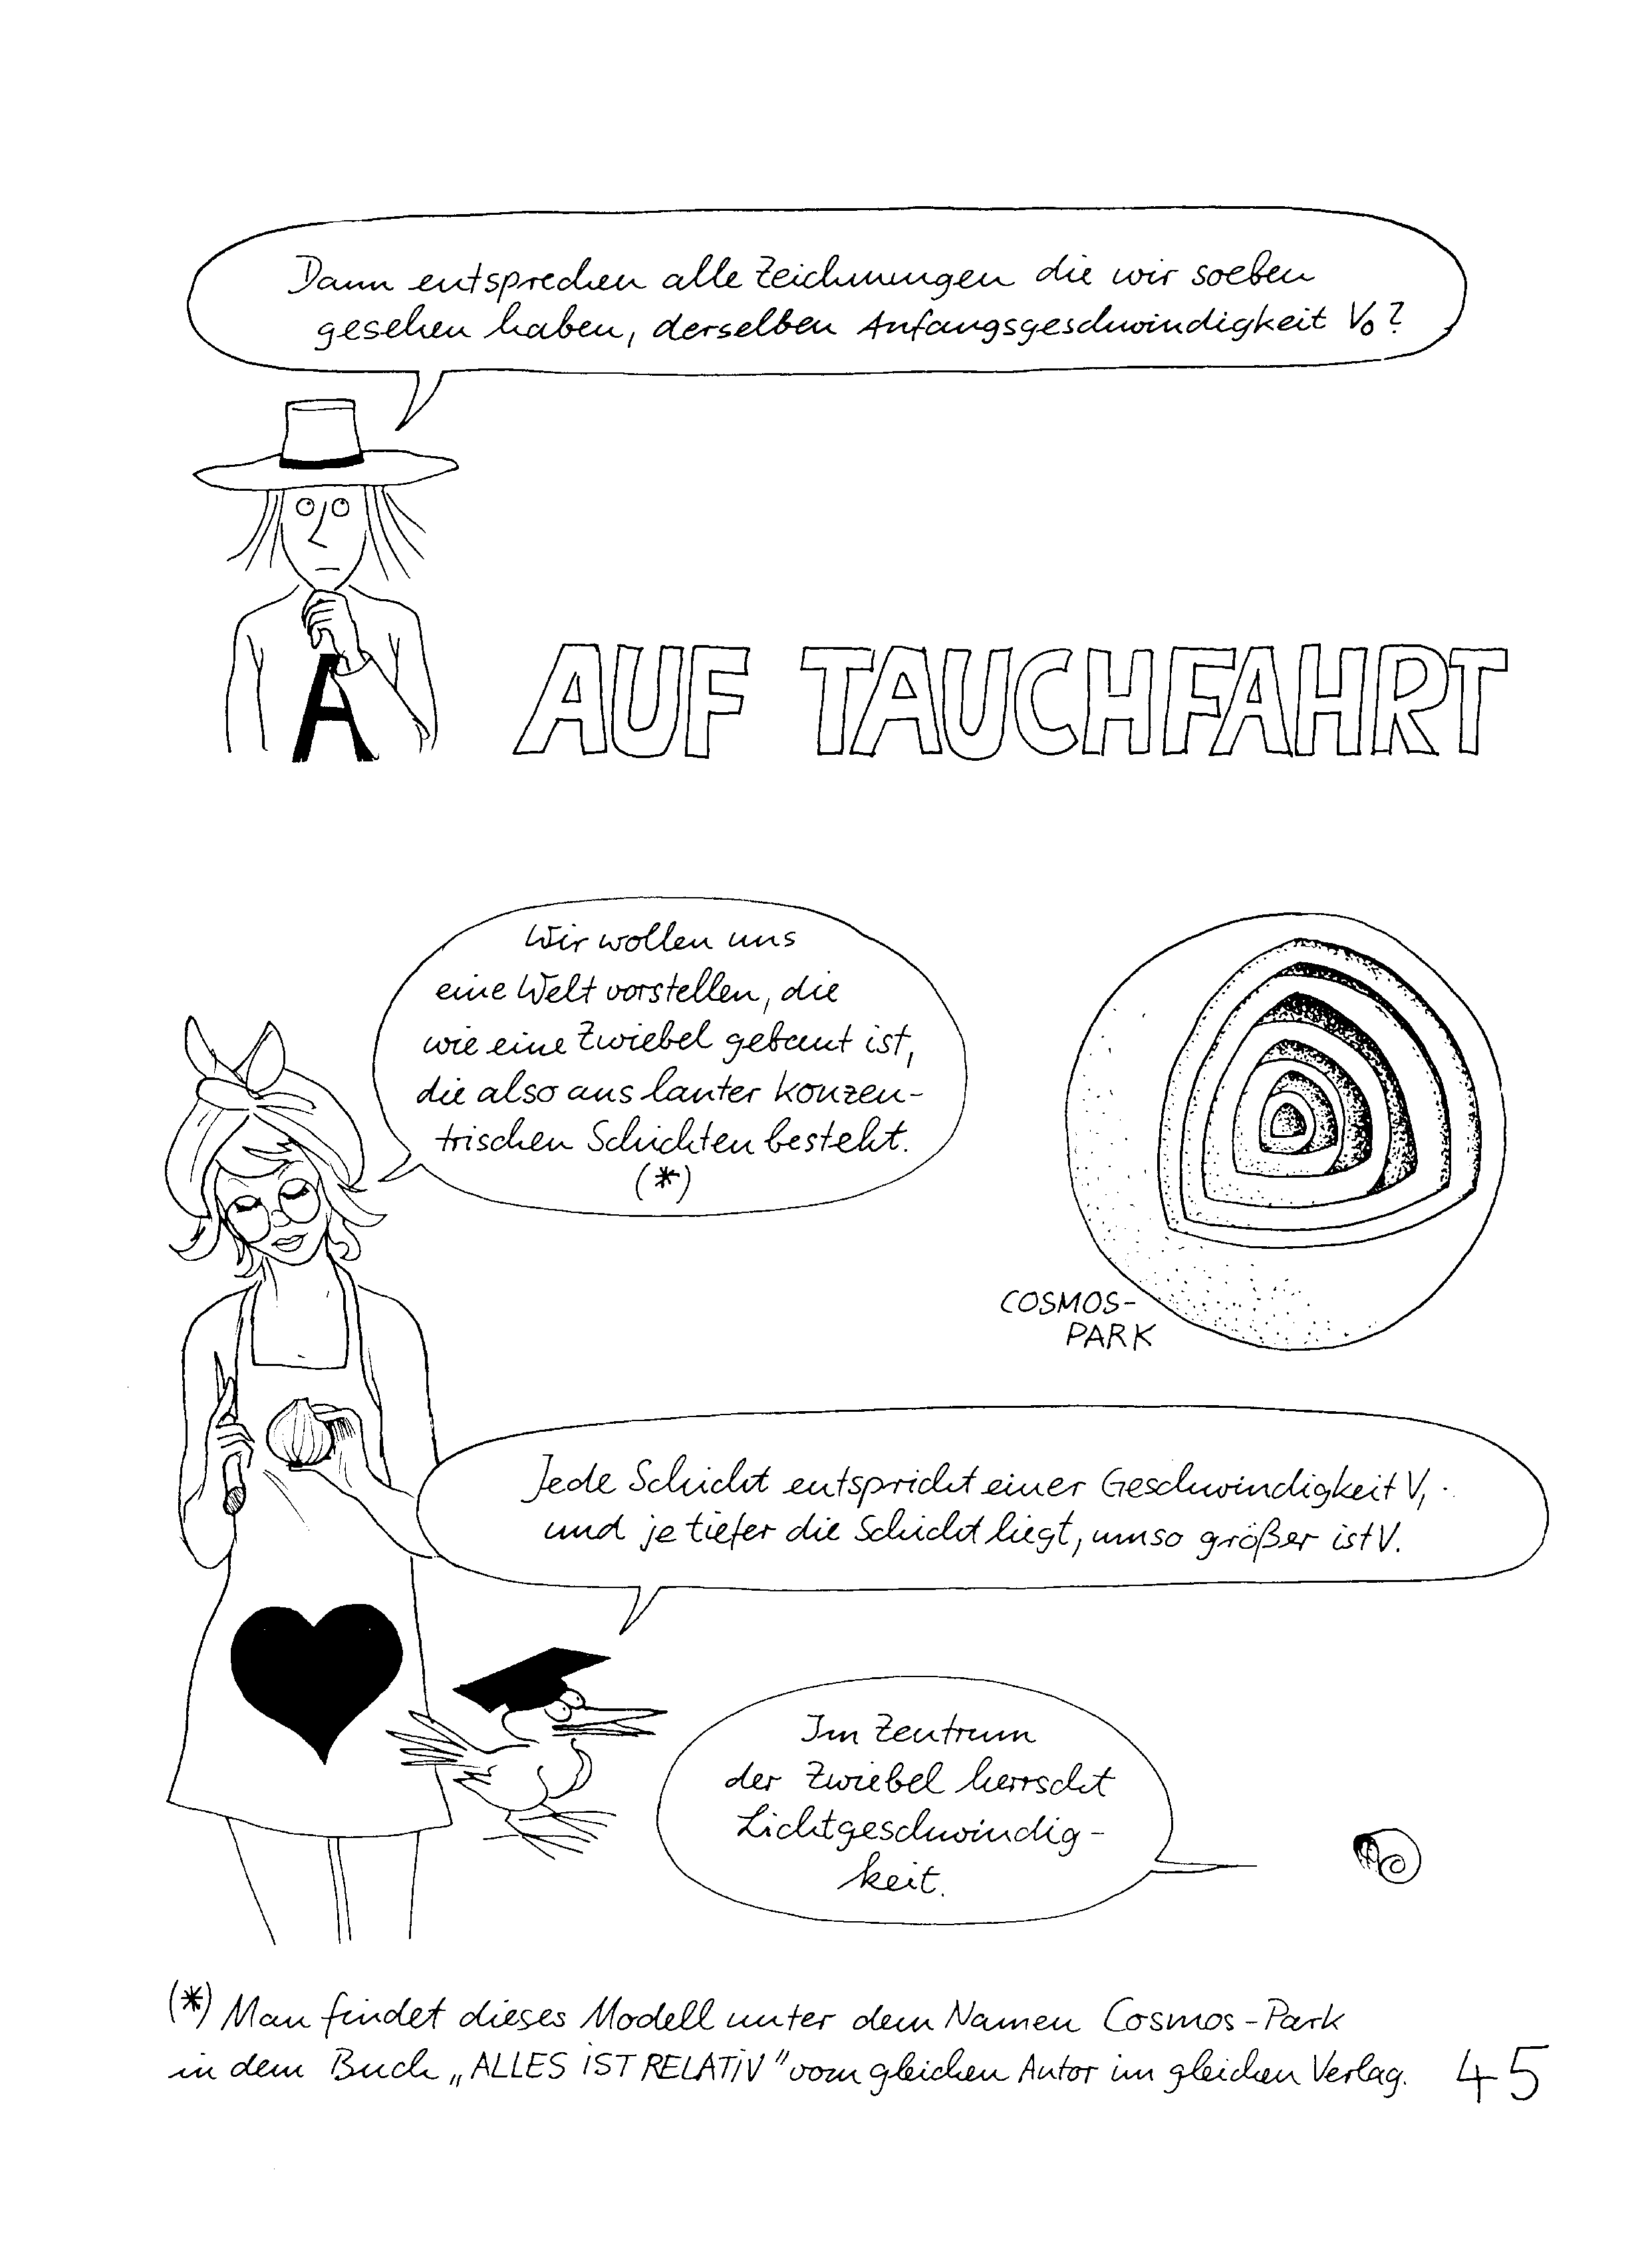 Dann entsprechen alle Zeichnungen die wir soeben
gesehen haben, derselben Anfangsgeschwindigkeit V₀?
A
AUF TAUCHFAHRT
Wir wollen uns
eine Welt vorstellen, die
wie eine Zwiebel gebaut ist,
die also aus lauter konzen-
trischen Schichten besteht.
(*)
COSMOS-
PARK
Jede Schicht entspricht einer Geschwindigkeit V,
und je tiefer die Schicht liegt, umso größer ist V.
Im Zentrum
der Zwiebel herrscht
Lichtgeschwindig-
keit.
(*) Man findet dieses Modell unter dem Namen Cosmos-Park
in dem Buch „ALLES iST RELATiV" vom gleichen Autor im gleichen Verlag.
45